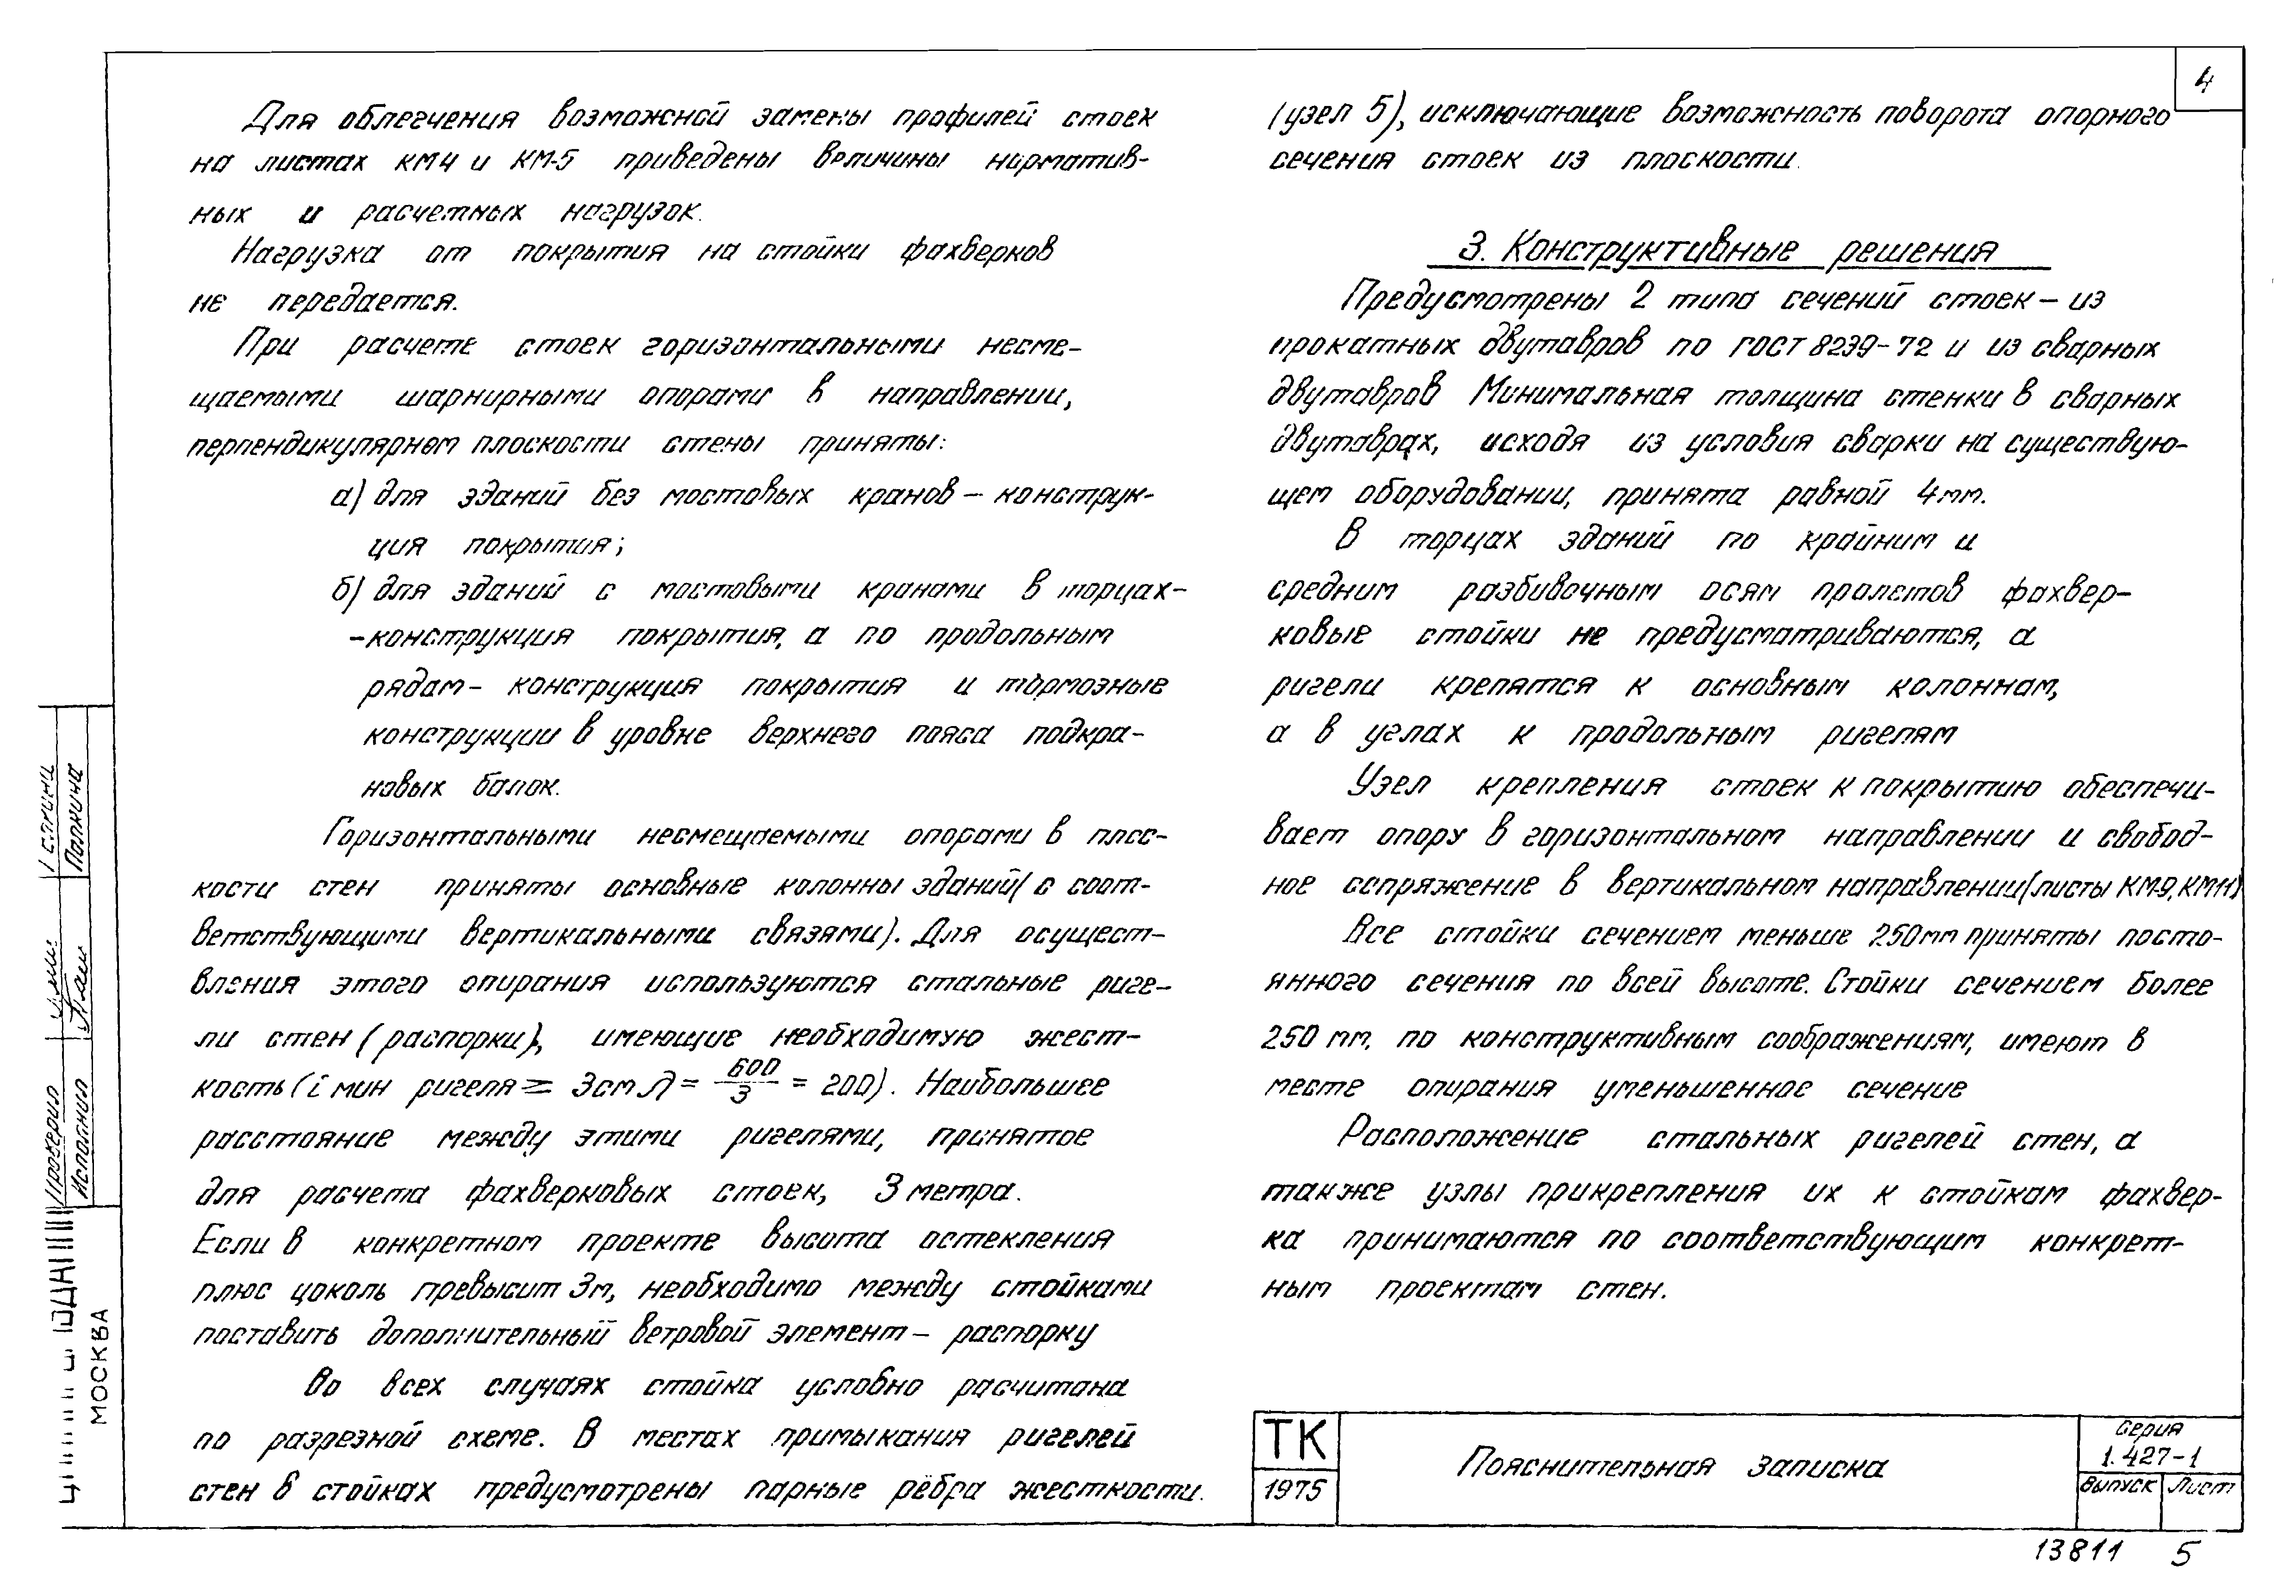 4
Для облегчения возможной замены профилей стоек
на листах КМ4 и КМ-5 приведены величины норматив-
ных и расчетных нагрузок.
Нагрузка от покрытия на стойки фахверков
не передается.
При расчете стоек горизонтальными несме-
щаемыми шарнирными опорами в направлении,
перпендикулярном плоскости стены приняты:
а) для зданий без мостовых кранов - конструк-
ция покрытия;
б) для зданий с мостовыми кранами в торцах-
-конструкция покрытия, а по продольным
рядам - конструкция покрытия и тормозные
конструкции в уровне верхнего пояса подкра-
новых балок.
Горизонтальными несмещаемыми опорами в плос-
кости стен приняты основные колонны зданий (с соот-
ветствующими вертикальными связями). Для осущест-
вления этого опирания используются стальные риге-
ли стен (распорки), имеющие необходимую жест-
кость (i мин ригеля ≥ 3см λ = 600/3 = 200). Наибольшее
расстояние между этими ригелями, принятое
для расчета фахверковых стоек, 3 метра.
Если в конкретном проекте высота остекления
плюс цоколь превысит 3м, необходимо между стойками
поставить дополнительный ветровой элемент - распорку
Во всех случаях стойка условно расчитана
по разрезной схеме. В местах примыкания ригелей
стен в стойках предусмотрены парные рёбра жесткости.
(узел 5), исключающие возможность поворота опорного
сечения стоек из плоскости.
3. Конструктивные решения
Предусмотрены 2 типа сечений стоек - из
прокатных двутавров по ГОСТ 8239-72 и из сварных
двутавров Минимальная толщина стенки в сварных
двутаврах, исходя из условия сварки на существую-
щем оборудовании, принята равной 4мм.
В торцах зданий по крайним и
средним разбивочным осям пролетов фахвер-
ковые стойки не предусматриваются, а
ригели крепятся к основным колоннам,
а в углах к продольным ригелям
Узел крепления стоек к покрытию обеспечи-
вает опору в горизонтальном направлении и свобод-
ное сопряжение в вертикальном направлении (листы КМ-9, КМ11)
Все стойки сечением меньше 250мм приняты посто-
янного сечения по всей высоте. Стойки сечением более
250 мм, по конструктивным соображениям, имеют в
месте опирания уменьшенное сечение
Расположение стальных ригелей стен, а
также узлы прикрепления их к стойкам фахвер-
ка принимаются по соответствующим конкрет-
ным проектам стен.
Проверил
Исполнил
МОСКВА
ТК
1975
Пояснительная записка
Серия
1.427-1
Выпуск Лист
13811 5